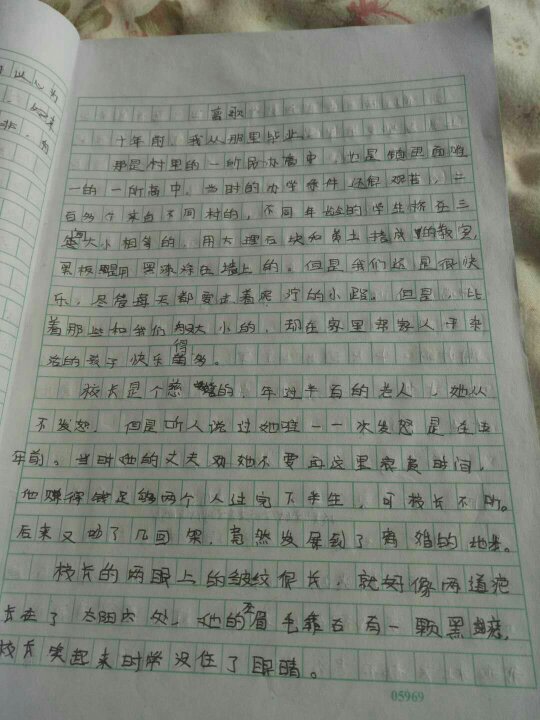 以心为
起来
非,为
离歌
十年前,我从那里毕业。
那是村里的一所民办高中,也是镇里面唯
一的一所高中。当时的办学条件还很艰苦,三
百多个来自不同村的,不同年龄的学生挤在三
间大小相等的,用大理石块和黄土搭成的教室,
黑板是用黑漆涂在墙上的。但是我们还是很快
乐,尽管每天都要走着泥泞的小路。但是,比
着那些和我们般大小的,却在家里帮家人干农
活的孩子快乐得多。
校长是个慈的,年过半百的老人,她从
不发怒,但是听人说过她唯一一次发怒是在
年前。当时她的丈夫劝她不要再这里浪费时间,
他赚得钱足够两个人过完下半生,可校长不听。
后来又劝了几回果,竟然发展到了离婚的地步。
校长的两眼上的皱纹很长,就好像两道疤
长在了太阳穴处,她的左眉毛靠右有一颗黑痣,
校长笑起来时常没住了眼睛。
05969